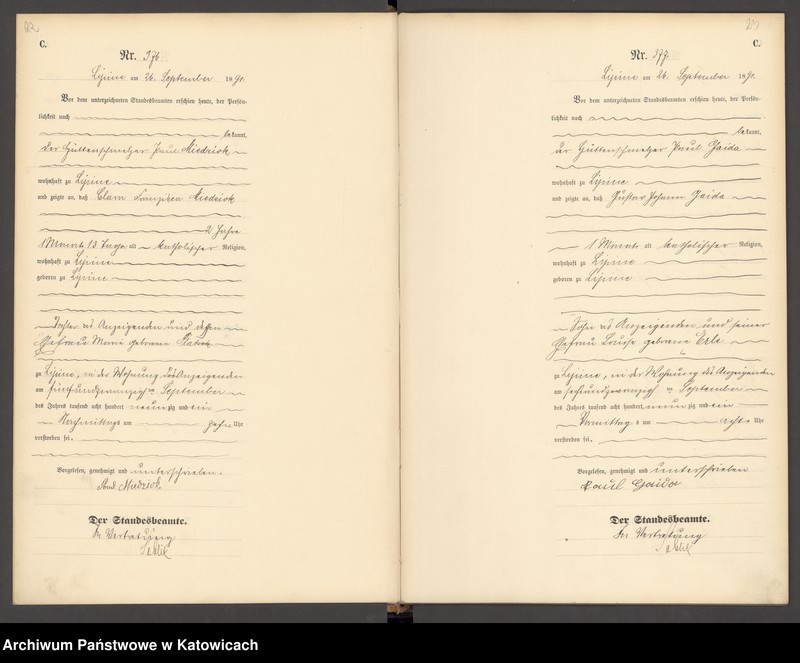 C.
Nr. 376
Lipine am 26. September 1891.
Vor dem unterzeichneten Standesbeamten erschien heute, der Persön-
lichkeit nach
bekannt,
der Hüttenschmelzer Paul Miedziok
wohnhaft zu Lipine
und zeigte an, daß Clara Miedziok
2 Jahre
1 Monat 13 Tage alt katholischer Religion,
wohnhaft zu Lipine
geboren zu Lipine
Tochter des Anzeigenden und dessen
Ehefrau Marie geborene
zu Lipine, in der Wohnung des Anzeigenden
am fünfundzwanzigsten September
des Jahres tausend acht hundert neunzig und ein
Nachmittags um zehn Uhr
verstorben sei.
Vorgelesen, genehmigt und unterschrieben.
Paul Miedziok
Der Standesbeamte.
In Vertretung
C.
Nr. 377.
Lipine am 26. September 1891.
Vor dem unterzeichneten Standesbeamten erschien heute, der Persön-
lichkeit nach
bekannt,
der Hüttenschmelzer Paul Gaida
wohnhaft zu Lipine
und zeigte an, daß Gustav Johann Gaida
1 Monat alt katholischer Religion,
wohnhaft zu Lipine
geboren zu Lipine
Sohn des Anzeigenden und seiner
Ehefrau Louise geborene Erle
zu Lipine, in der Wohnung des Anzeigenden
am sechsundzwanzigsten September
des Jahres tausend acht hundert neunzig und ein
Vormittags um acht Uhr
verstorben sei.
Vorgelesen, genehmigt und unterschrieben
Paul Gaida
Der Standesbeamte.
In Vertretung
Archiwum Państwowe w Katowicach